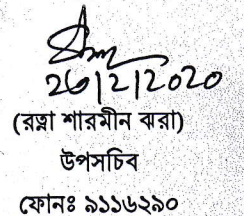 26/2/2020
(রত্না শারমীন ঝরা)
উপসচিব
ফোনঃ ৯১১৬২৯০